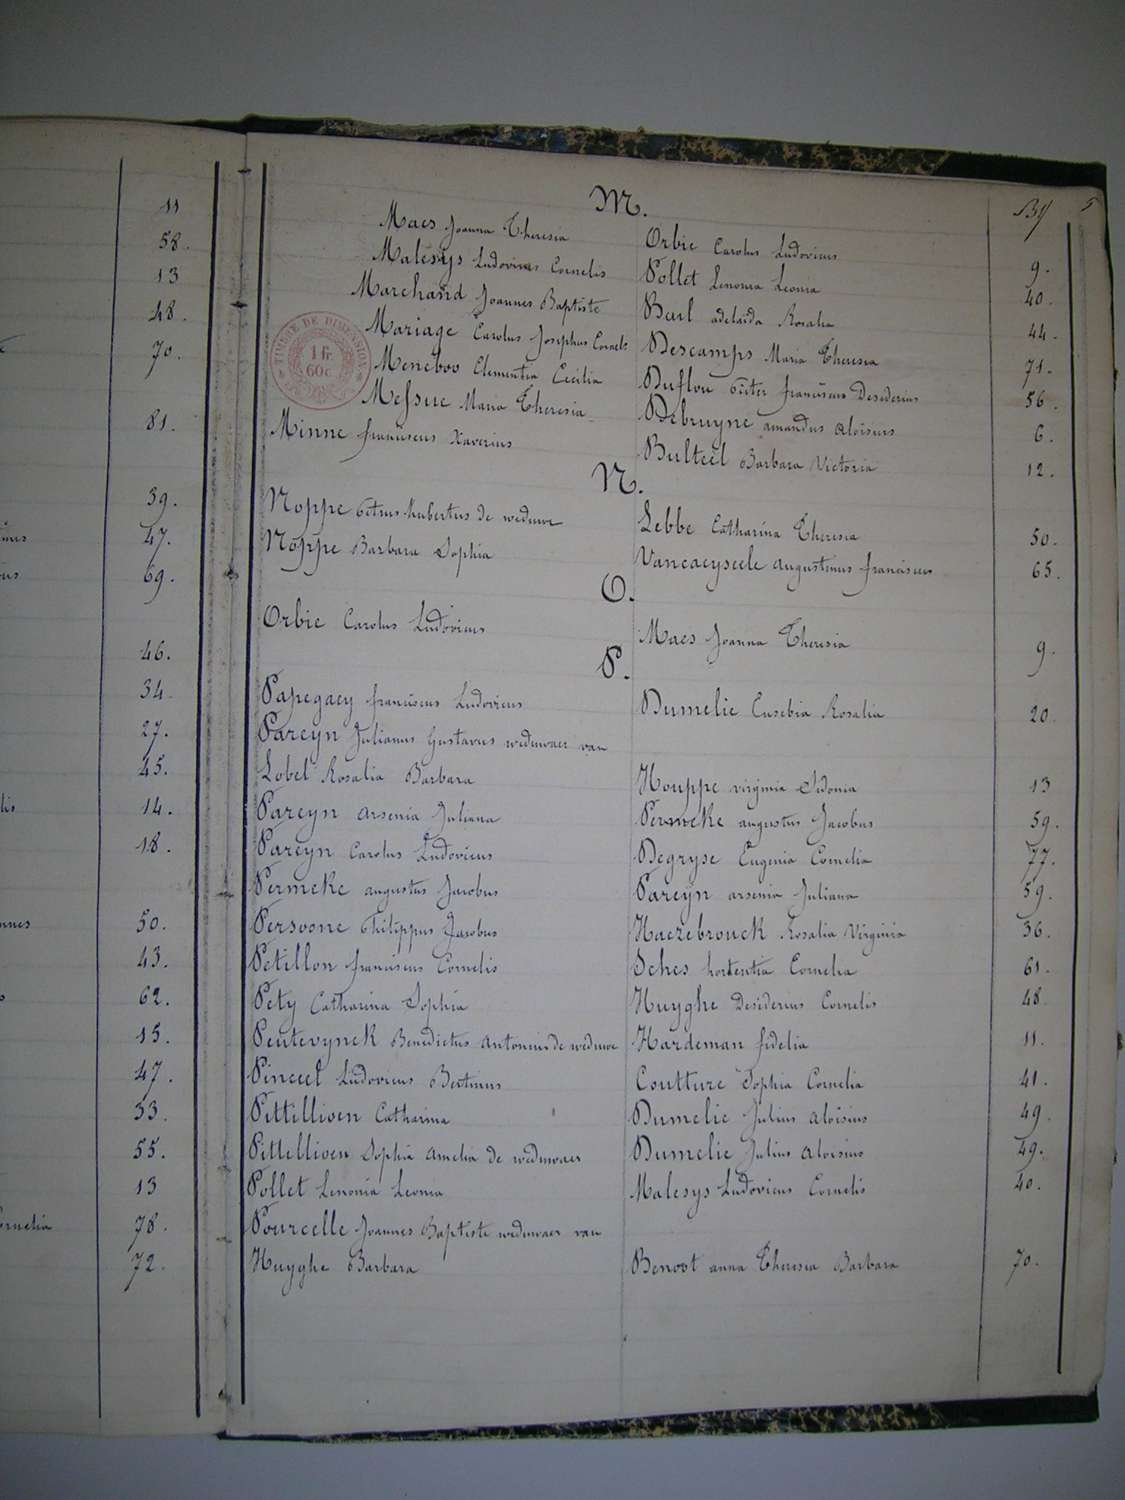 11
58.
13
48.
70.
81.
39.
47.
69.
46.
34.
27.
45.
14.
18.
50.
43.
62.
15.
47.
33.
55.
13
ornelia 78.
72.
M. 5
Maes Joanna Theresia Orbie Carolus Ludovicus 9.
Malesys Ludovicus Cornelis Pollet Lenonia Leonia 40.
Marchand Joannes Baptiste Bail adelaida Rosalia 44.
Mariage Carolus Josephus Cornels Descamps Maria Theresia 71.
Meneboo Clementia Cecilia Duflou Pieter franciscus Desiderius 56.
Messue Maria Theresia Debruyne amandus aloisius 6.
Minne franciscus Xaverius Bulteel Barbara Victoria 12.
TIMBRE DE DIMENSION
1 fr.
60c.
N.
Noppe Petrus hubertus de weduwe Lebbe Catharina Theresia 50.
Noppe Barbara Sophia Vancaeyseele augustinus franciscus 65.
O.
Orbie Carolus Ludovicus Maes Joanna Theresia 9.
P.
Papegaey franciscus Ludovicus Dumelie Eusebia Rosalia 20
Pareyn Julianus Gustavus weduwaer van
Lobel Rosalia Barbara Houppe virginia Sidonia 13
Pareyn arsenia Juliana Permeke augustus Jacobus 59.
Pareyn Carolus Ludovicus Degryse Eugenia Cornelia 77.
Permeke augustus Jacobus Pareyn arsenia Juliana 59.
Persoone Philippus Jacobus Haezebrouck Rosalia Virginia 36.
Petillon franciscus Cornelis Sches hortentia Cornelia 61.
Pety Catharina Sophia Huyghe Desiderius Cornelis 48
Peutevynck Benedictus antonius de weduwe Hardeman fidelia 11.
Pinceel Ludovicus Bertinus Coutture Sophia Cornelia 41.
Pittillioen Catharina Dumelie Julius aloisius 49.
Pittillioen Sophia amelia de weduwaer Dumelie Julius aloisius 49.
Pollet Lenonia Leonia Malesys Ludovicus Cornelis 40.
Pourcelle Joannes Baptiste weduwaer van
Huyghe Barbara Benoot anna Theresia Barbara 70.